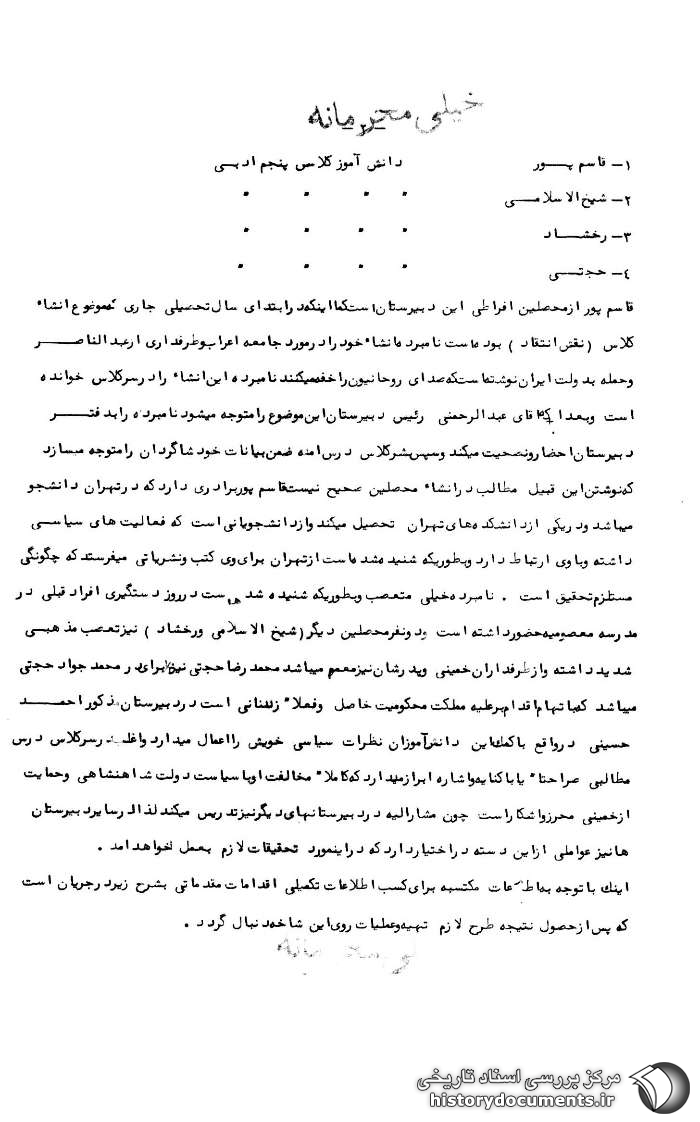 خیلی محرمانه
۱- قاسم پور دانش آموز کلاس پنجم ادبی
۲- شیخ الاسلامی " " " "
۳- رخشاد " " " "
۴- حجتی " " " "
قاسم پور از محصلین افراطی این دبیرستان است کما اینکه در ابتدای سال تحصیلی جاری که موضوع انشاء
کلاس (نقش انتقاد) بوده است نامبرده انشاء خود را در مورد جامعه اعراب و طرفداری از عبدالناصر
وحمله بدولت ایران نوشته است که صدای روحانیون را خفه میکنند نامبرده این انشاء را در سر کلاس خوانده
است وبعدا که آقای عبدالرحمنی رئیس دبیرستان این موضوع را متوجه میشود نامبرده را بدفتر
دبیرستان احضار ونصحیت میکند وسپس بسر کلاس درس امده ضمن بیانات خود شاگردان را متوجه میسازد
که نوشتن این قبیل مطالب در انشاء محصلین صحیح نیست قاسم پور برادری دارد که در تهران دانشجو
میباشد ودر یکی از دانشکده های تهران تحصیل میکند واز دانشجویانی است که فعالیت های سیاسی
داشته وباوی ارتباط دارد وبطوریکه شنیده شده است از تهران برای وی کتب ونشریاتی میفرستد که چگونگی
مستلزم تحقیق است . نامبرده خیلی متعصب وبطوریکه شنیده شده است در روز دستگیری افراد قبلی در
مدرسه معصومیه حضور داشته است ودونفر محصلین دیگر (شیخ الاسلامی ورخشاد) نیز تعصب مذهبی
شدید داشته واز طرفداران خمینی وپدرشان نیز معمم میباشد محمد رضا حجتی نیز برادر محمد جواد حجتی
میباشد که باتهام اقدام بر علیه مملکت محکومیت حاصل وفعلا" زندانی است در دبیرستان مذکور احمد
حسینی در واقع باکمک این دانش آموزان نظرات سیاسی خویش را اعمال میدارد واغلب در سر کلاس درس
مطالبی صراحتا" یا باکنایه واشاره ابراز میدارد که کاملا" مخالفت او با سیاست دولت شاهنشاهی وحمایت
از خمینی محرز واشکار است چون مشارالیه در دبیرستانهای دیگر نیز تدریس میکند لذا در سایر دبیرستان
ها نیز عواملی از این دسته در اختیار دارد که در اینمورد تحقیقات لازم بعمل خواهد امد .
اینک با توجه به اطلاعات مکتسبه برای کسب اطلاعات تکمیلی اقدامات مقدماتی بشرح زیر در جریان است
که پس از حصول نتیجه طرح لازم تهیه وعملیات روی این شاخه دنبال گردد .
خیلی محرمانه
مرکز بررسی اسناد تاریخی
historydocuments.ir